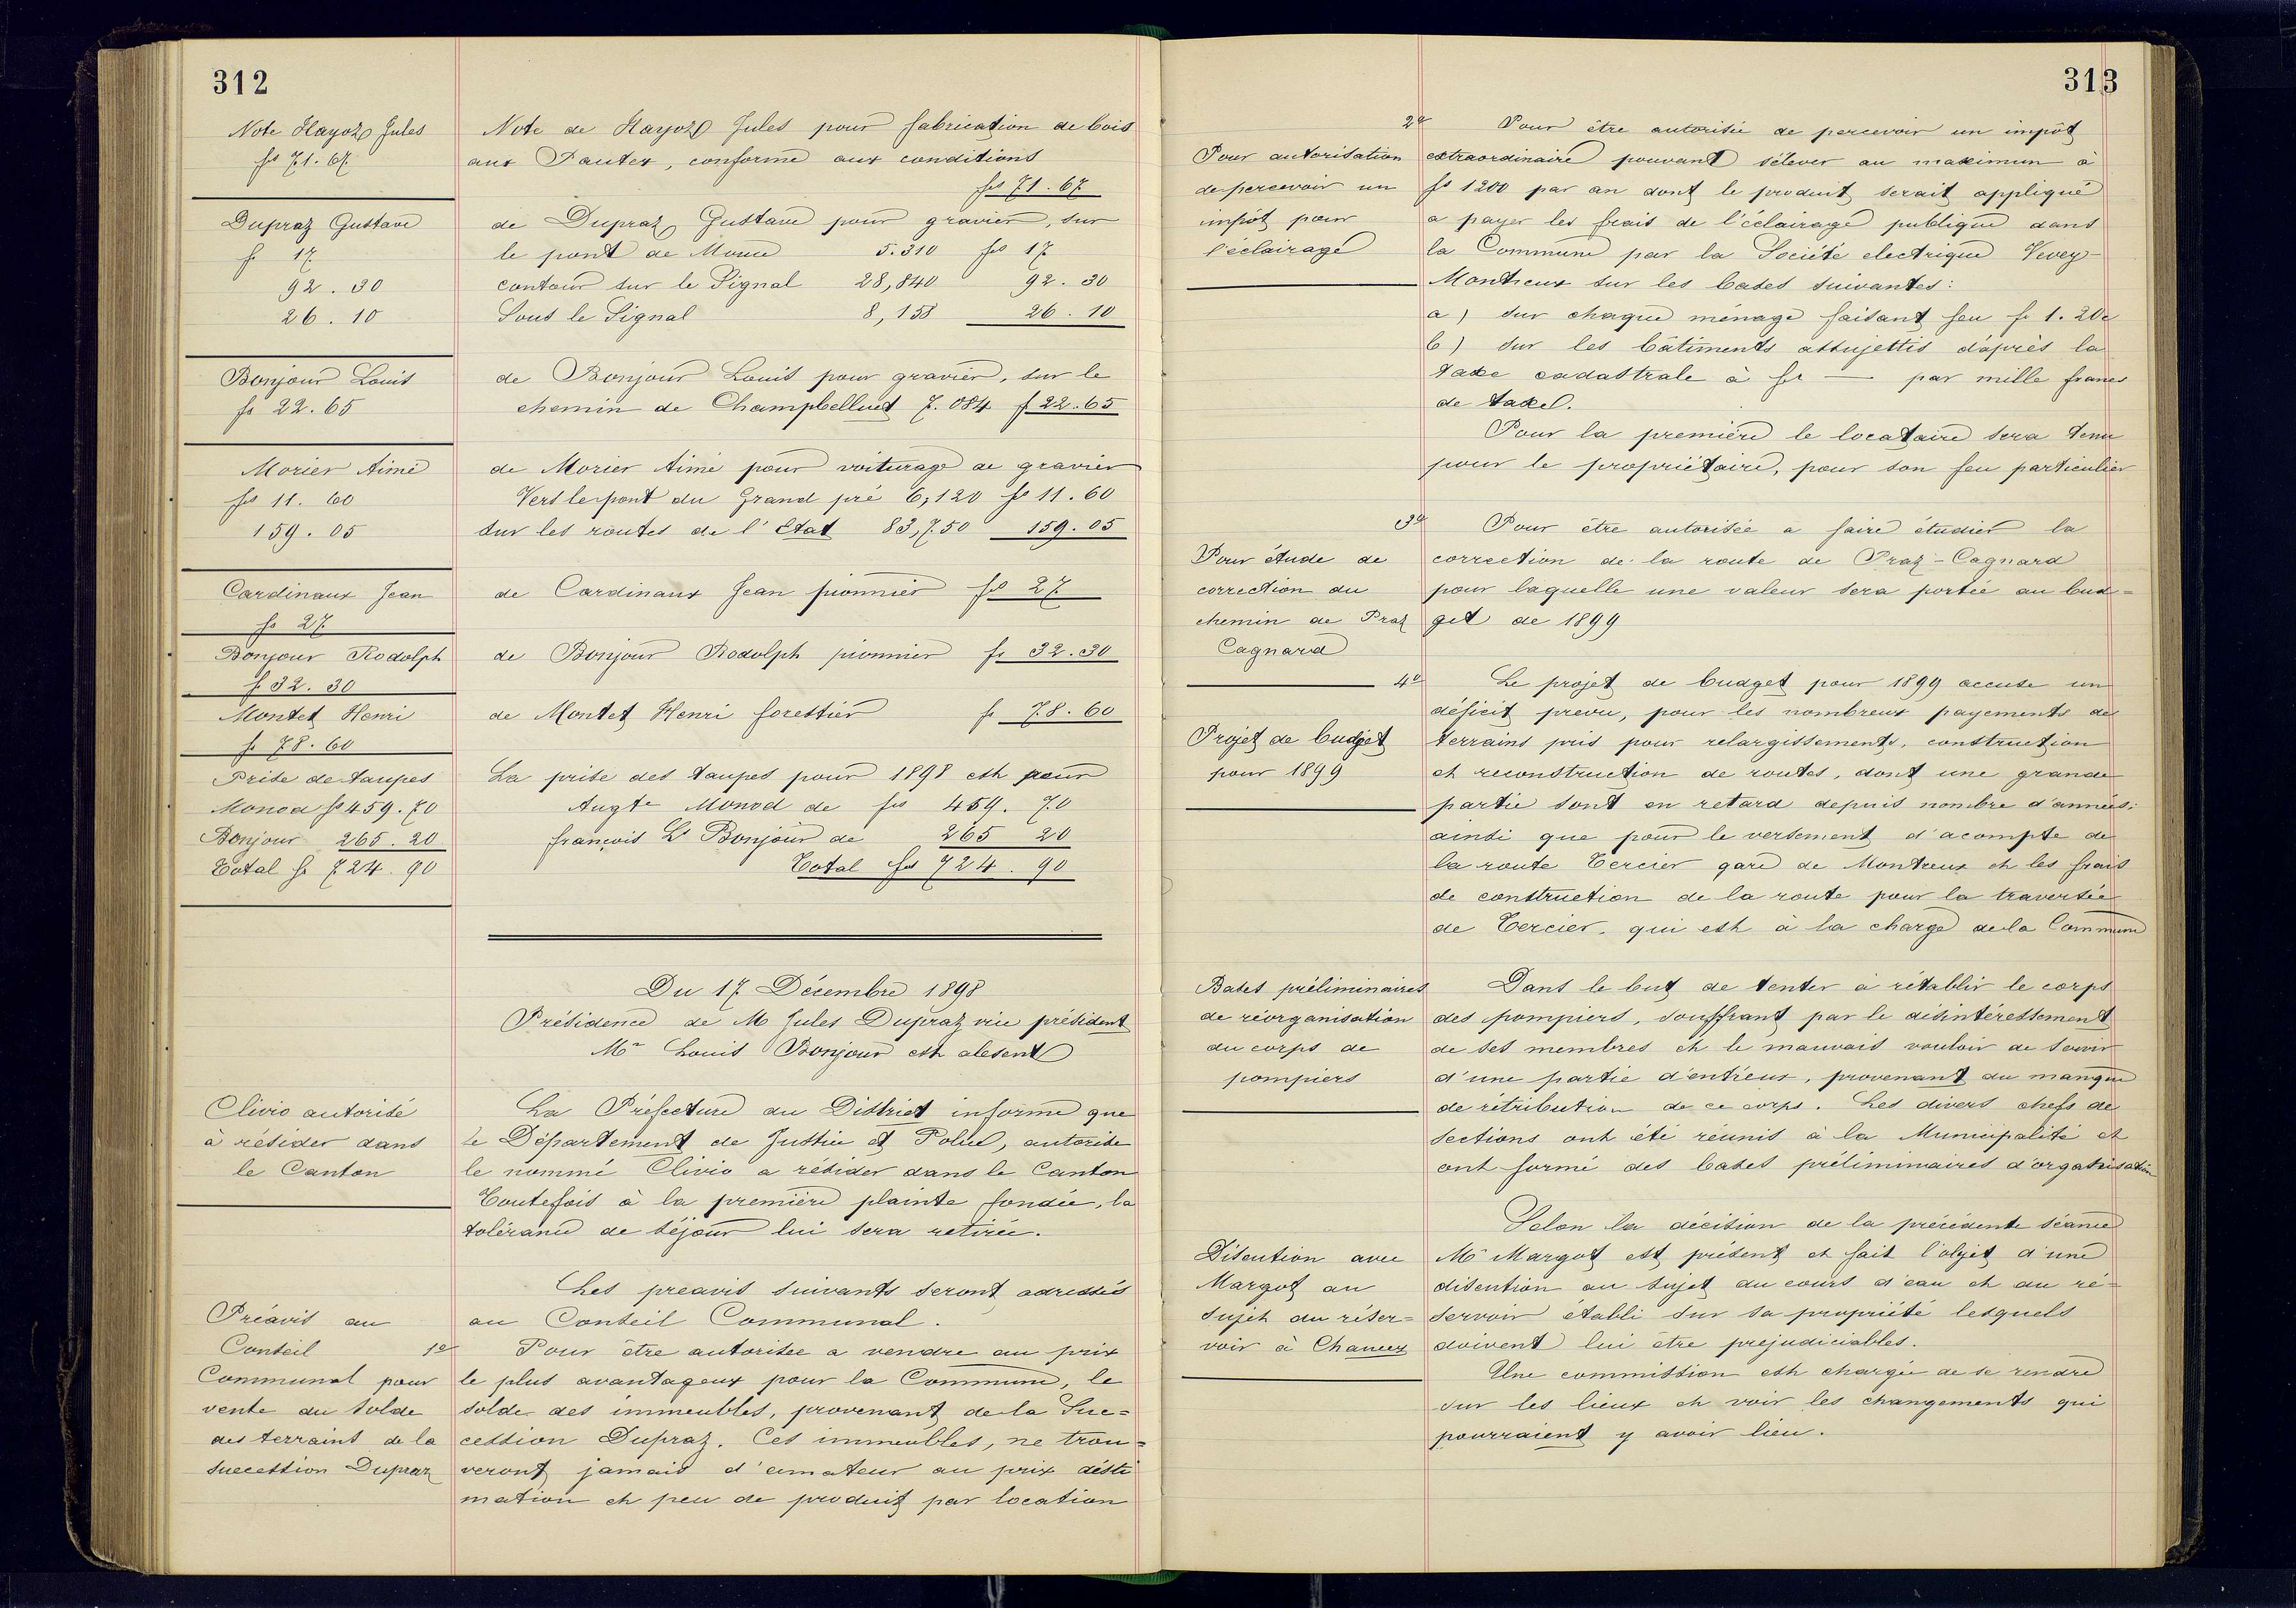 312
Note Hayoz Jules
fs 71.67
Note de Hayoz Jules pour fabrication de bois
aux Pautex, conforme aux conditions
fs 71.67
Dupraz Gustave
f 17
92.30
26.10
de Dupraz Gustave pour gravier, sur
le pont de 5.310 fs 17
contour sur le Signal 28,840 92.30
Sous le Signal 8,158 26.10
Bonjour Louis
fs 22.65
de Bonjour Louis pour gravier, sur le
chemin de Champbelluet 7.084 f 22.65
Morier Aimé
fs 11.60
159.05
de Morier Aimé pour voiturage de gravier
Vers le pont du Grand pré 6,120 fs 11.60
sur les routes de l'Etat 83,750 159.05
Cardinaux Jean
fs 27
de Cardinaux Jean pionnier fs 27
Bonjour Rodolph
f 32.30
de Bonjour Rodolph pionnier fs 32.30
Montet Henri
f 78.60
de Montet Henri forestier f 78.60
Prise de taupes
Monod fs 459.70
Bonjour 265.20
Total fs 724.90
La prise des taupes pour 1898 est pour
Augte Monod de fs 459.70
françois Ls Bonjour de 265 20
Total fs 724.90
Du 17 Décembre 1898
Présidence de M Jules Dupraz vice président
Mr Louis Bonjour est absent
Clivio autorisé
à résider dans
le Canton
La Préfecture du District informe que
le Département de Justice et Police, autorise
le nommé Clivio a résider dans le Canton
Toutefois à la première plainte fondée, la
tolérance de séjour lui sera retirée.
Les preavis suivants seront adressés
au Conseil Communal.
Préavis au
Conseil
Communal pour
vente du solde
des terrains de la
succession Dupraz
1o Pour être autorisée a vendre au prix
le plus avantageux pour la Commune, le
solde des immeubles, provenant de la Suc=
cession Dupraz. Ces immeubles, ne trou=
veront jamais d'amateur au prix désti
mation et peu de produit par location
313
Pour autorisation
de percevoir un
impôt pour
l'éclairage
2o Pour être autorisée de percevoir un impôt
extraordinaire pouvant sélever au maximun à
fs 1200 par an dont le produit serait appliqué
a payer les frais de l'éclairage publique dans
la Commune par la Société electrique Vevey-
Montreux sur les bases suivantes:
a) sur chaque ménage faisant feu fr 1.20c
b) sur les bâtiments assujettis d'après la
taxe cadastrale à fr — par mille francs
de taxe.
Pour la première le locataire sera tenu
pour le propriétaire, pour son feu particulier
Pour étude de
correction du
chemin de Praz
Cagnard
3o Pour être autorisée a faire étudier la
correction de la route de Praz-Cagnard
pour laquelle une valeur sera portée au bud=
get de 1899
Projet de budget
pour 1899
4o Le projet de budget pour 1899 accuse un
déficit prevu, pour les nombreux payements de
terrains pris pour relargissements, construction
et reconstruction de routes, dont une grande
partie sont en retard depuis nombre d'années;
ainsi que pour le versement d'acompte de
la route Tercier gare de Montreux et les frais
de construction de la route pour la traversée
de Tercier, qui est à la charge de la Commune
Bases préliminaires
de réorganisation
du corps de
pompiers
Dans le but de tenter à rétablir le corps
des pompiers, souffrant par le désintéressement
de ses membres et le mauvais vouloir de servir
d'une partie d'entr'eux, provenant du manque
de rétribution de ce corps. Les divers chefs de
sections ont été réunis à la Municipalité et
ont formé des bases préliminaires d'organisation
Discution avec
Margot au
sujet du réser=
voir à Chancex
Selon la décision de la précédente séance
Mr Margot est présent et fait l'objet d'une
discution au sujet du cours d'eau et du ré=
servoir établi sur sa propriété lesquels
doivent lui être prejudiciables.
Une commission est chargée de se rendre
sur les lieux et voir les changements qui
pourraient y avoir lieu.